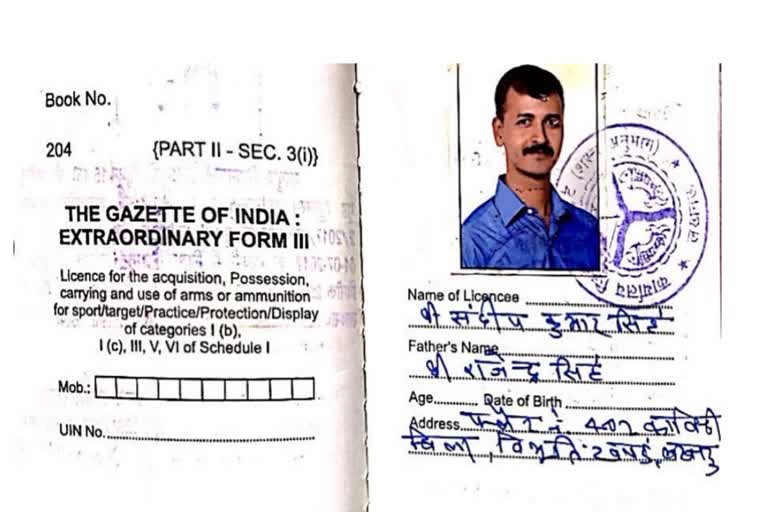 Book No.
204 {PART II - SEC. 3(i)}
THE GAZETTE OF INDIA :
EXTRAORDINARY FORM III
Licence for the acquisition, Possession,
carrying and use of arms or ammunition
for sport/target/Practice/Protection/Display
of categories I (b),
I (c), III, V, VI of Schedule I
Mob.:
UIN No.
(शस्त्र अनुभाग)
कार्यालय
Name of Licencee
श्री संदीप कुमार सिंह
Father's Name
श्री राजेन्द्र सिंह
Age.......... Date of Birth
Address फ्लैट नं. 402
विला, विभूति खण्ड, लखनऊ